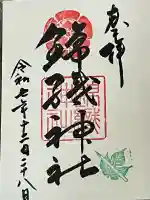 奉拝
錦織神社
令和七年十二月二十八日